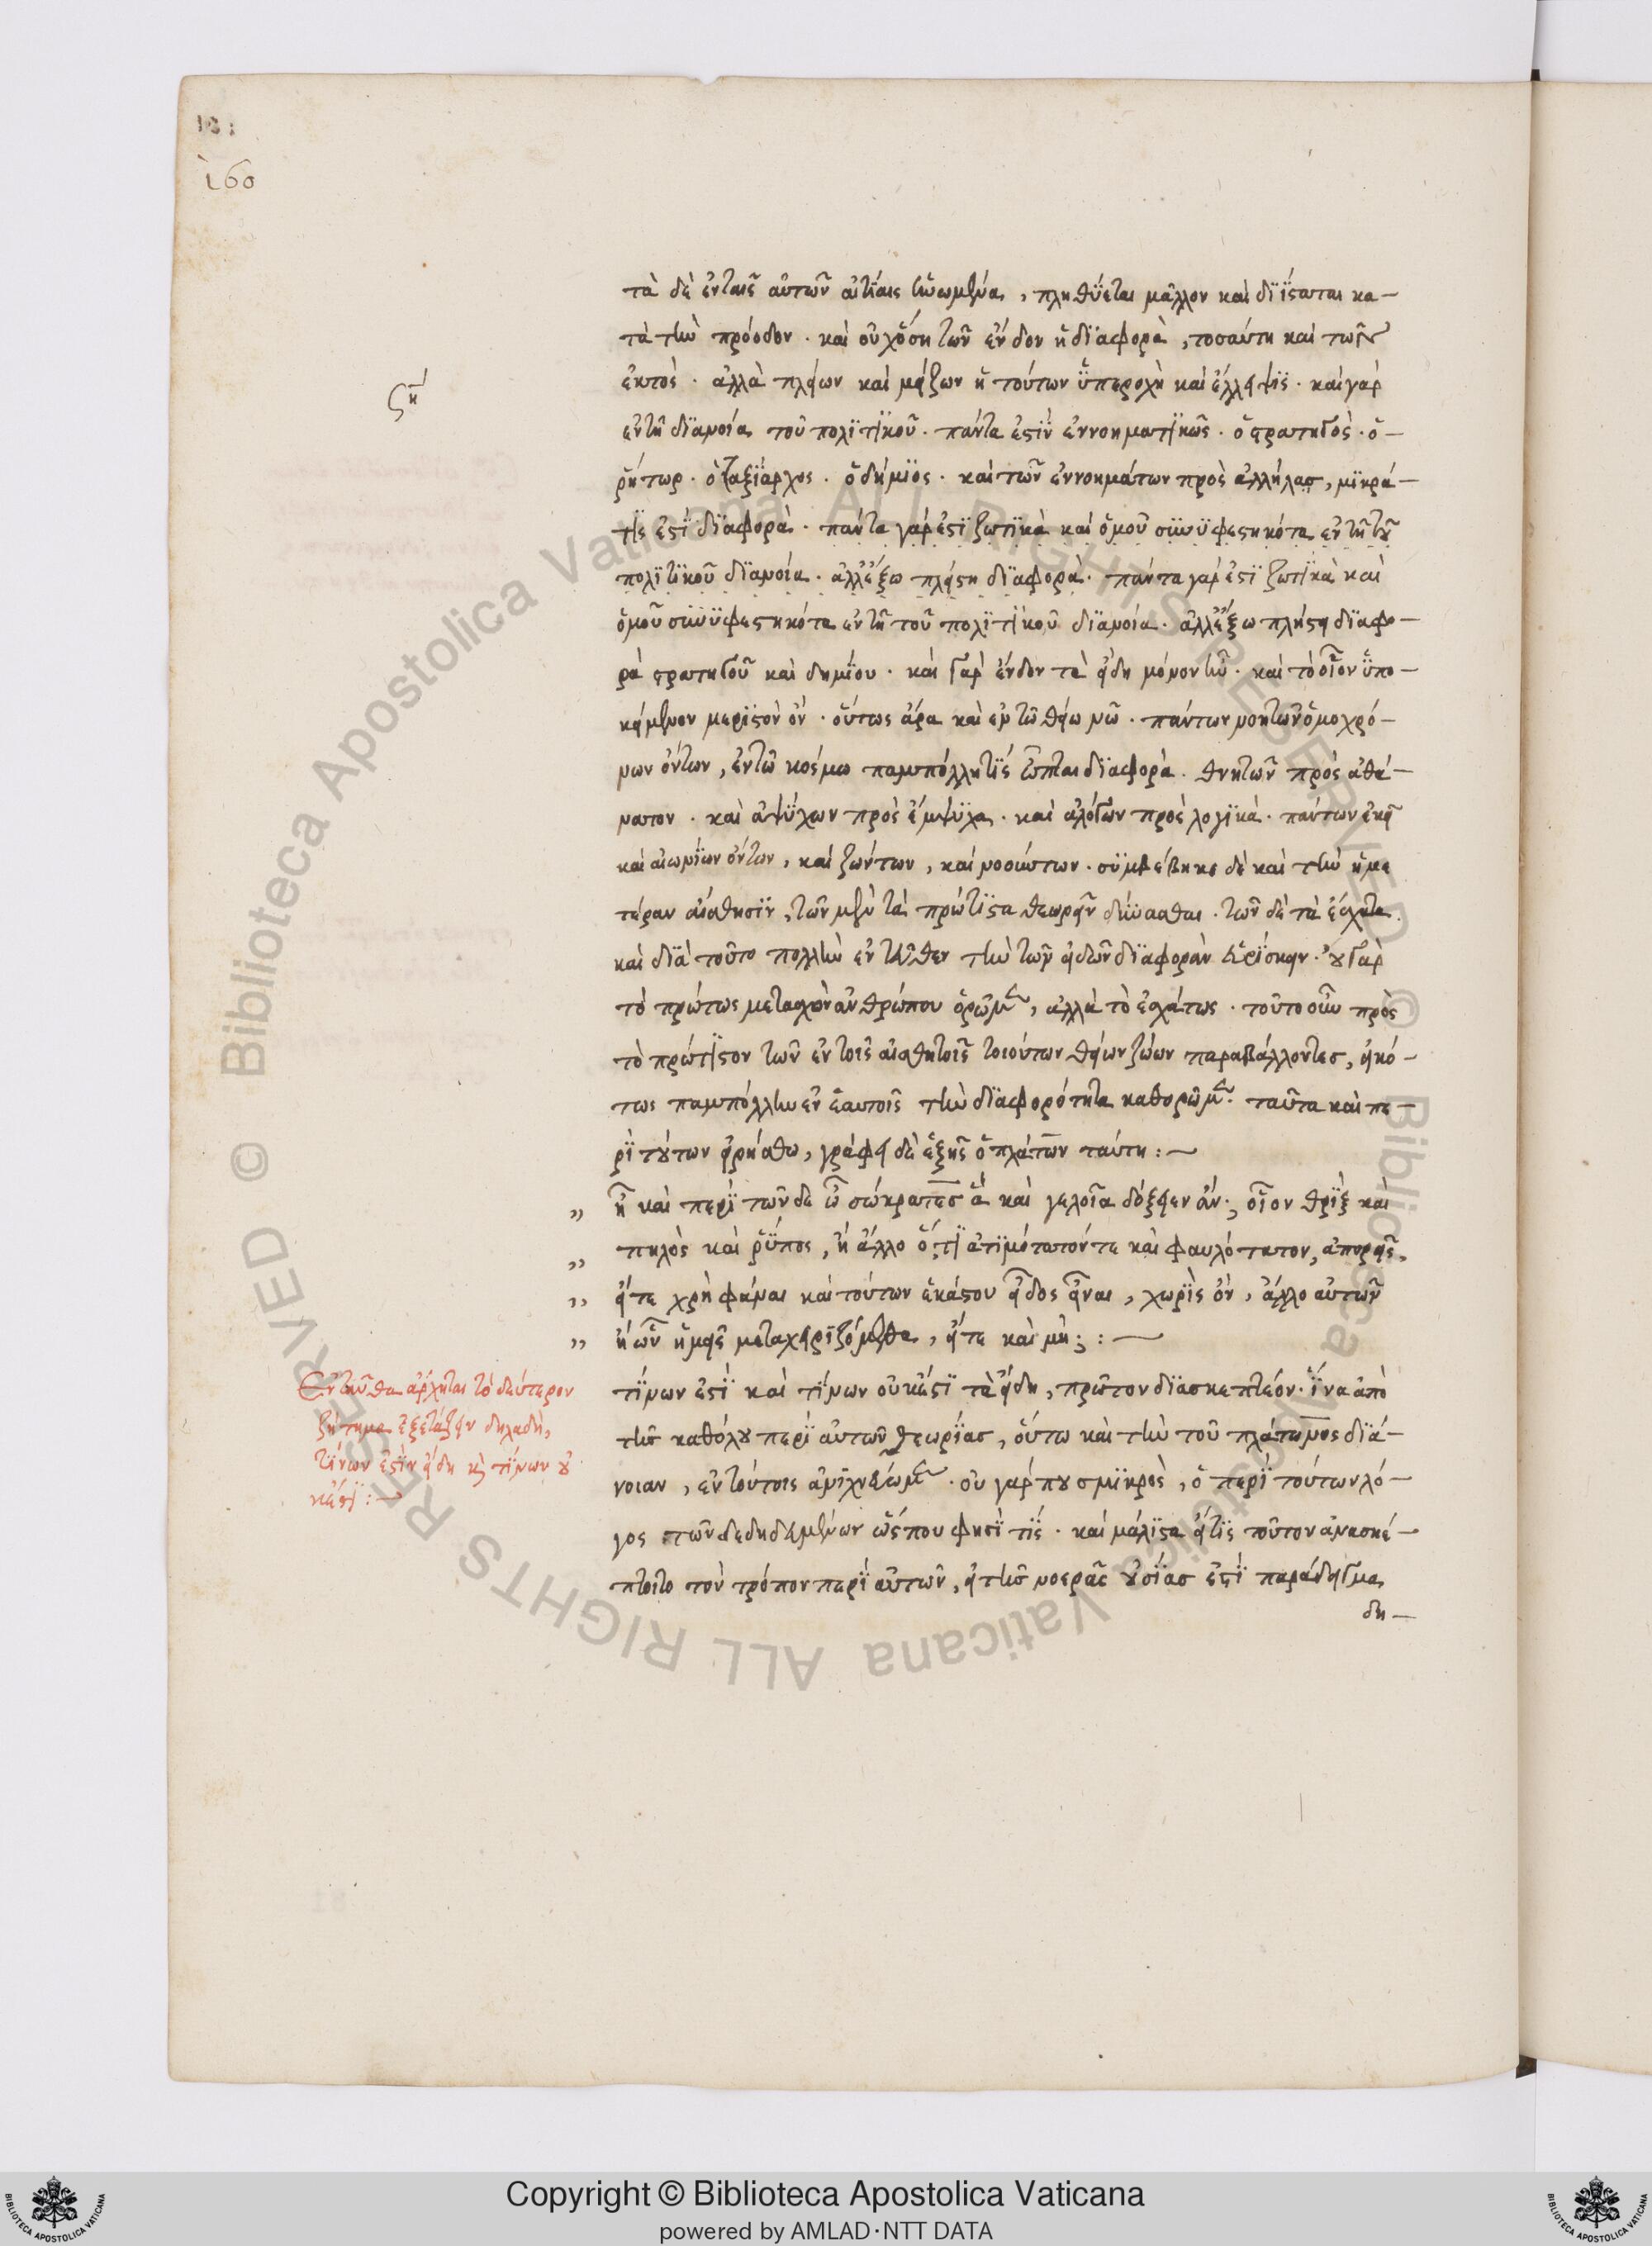 160
τὰ δὲ ἐν ταῖς αὐτῶν αἰτίαις ἡνωμένα, πληθύεται μᾶλλον καὶ διΐσταται κα-
τὰ τὴν πρόοδον. καὶ οὐχ ὅση τῶν ἔνδον ἡ διαφορὰ, τοσαύτη καὶ τῶν
ἐκτὸς. ἀλλὰ πλείων καὶ μείζων ἡ τούτων ὑπεροχὴ καὶ ἔλλειψις. καὶ γὰρ
ἐν τῇ διανοία τοῦ πολιτικοῦ. πάντα ἐστὶν ἐννοηματικῶς. ὁ στρατηγὸς. ὁ-
ῥήτωρ. ὁ ταξίαρχος. ὁ δήμιος. καὶ τῶν ἐννοημάτων πρὸς ἄλληλας, μικρά-
τίς ἐστὶ διαφορὰ. πάντα γάρ ἐστι ζωτικὰ καὶ ὁμοῦ συνυφεστηκότα ἐν τῇ τοῦ
πολιτικοῦ διανοία. ἀλλ' ἔξω πλείστη διαφορὰ. πάντα γάρ ἐστι ζωτικὰ καὶ
ὁμοῦ συνυφεστηκότα ἐν τῇ τοῦ πολιτικοῦ διανοία. ἀλλ' ἔξω πλήστη διαφο-
ρὰ στρατηγοῦ καὶ δημίου. καὶ γὰρ ἔνδον τὰ εἴδη μόνον ἦν. καὶ τὸ οἷον ὑπο-
κείμενον μεριστὸν ὄν. οὕτως ἄρα καὶ ἐν τῷ θείω νῶ. πάντων νοητῶν ὁμοχρό-
νων ὄντων, ἐν τῷ κόσμω παμπόλλη τίς ὦπται διαφορὰ. θνητῶν πρὸς ἀθά-
νατον. καὶ ἀψύχων πρὸς ἔμψυχα. καὶ ἀλόγων πρὸς λογικὰ. πάντων ἐκεῖ
καὶ αἰωνίων ὄντων, καὶ ζώντων, καὶ νοούντων. συμβέβηκε δὲ καὶ τὴν ἡμε
τέραν αἴσθησιν, τῶν μὲν τὰ πρώτιστα θεωρεῖν δύνασθαι. τῶν δὲ τὰ ἔσχατα.
καὶ διὰ τοῦτο πολλὴν ἐντεῦθεν τὴν τῶν εἰδῶν διαφορὰν εὑρίσκειν. οὐ γὰρ
τὸ πρώτως μετασχὸν ἀνθρώπου ὁρῶμεν, ἀλλὰ τὸ ἐσχάτως. τοῦτο οὖν πρὸς
τὸ πρώτιστον τῶν ἐν τοῖς αἰσθητοῖς τοιούτων θείων ζώων παραβάλλοντες, εἰκό-
τως παμπόλλην ἐν ἑαυτοῖς τὴν διαφορότητα καθορῶμεν. ταῦτα καὶ πε-
ρὶ τούτων εἰρήσθω, γράφει δὲ ἑξῆς ὁ πλάτων ταύτη:—
„ ἦ καὶ περὶ τῶνδε ὦ σώκρατες ἃ καὶ γελοῖα δόξειεν ἄν; οἷον θρὶξ καὶ
„ πηλὸς καὶ ῥύπος, ἢ ἄλλο ὅ,τι ἀτιμότατόν τε καὶ φαυλότατον, ἀπορεῖς,
„ εἴτε χρὴ φάναι καὶ τούτων ἑκάστου εἶδος εἶναι, χωρὶς ὂν, ἄλλο αὐτῶν
„ ἢ ὧν ἡμεῖς μεταχειριζόμεθα, εἴτε καὶ μή;:—
Ἐνταῦθα ἄρχεται τὸ δεύτερον
ζήτημα ἐξετάζειν δηλαδὴ,
τίνων ἐστὶν εἴδη καὶ τίνων οὐ
κέστι:—
τίνων ἐστὶ καὶ τίνων οὐκ ἔστι τὰ εἴδη, πρῶτον διασκεπτέον. ἵνα ἀπὸ
τῆς καθόλου περὶ αὐτῶν θεωρίας, οὕτω καὶ τὴν τοῦ πλάτωνος διά-
νοιαν, ἐν τούτοις ἀνιχνεύωμεν. οὐ γάρ που σμικρὸς, ὁ περὶ τούτων λό-
γος τῶν δεδηδεμένων ὥς που φησὶ τίς. καὶ μάλιστα εἴ τις τοῦτον ἀνασκέ-
πτοιτο τὸν τρόπον περὶ αὐτῶν, εἰ τῆς νοερᾶς οὐσίας ἐστὶ παράδειγμα
δη-
Copyright © Biblioteca Apostolica Vaticana
powered by AMLAD·NTT DATA